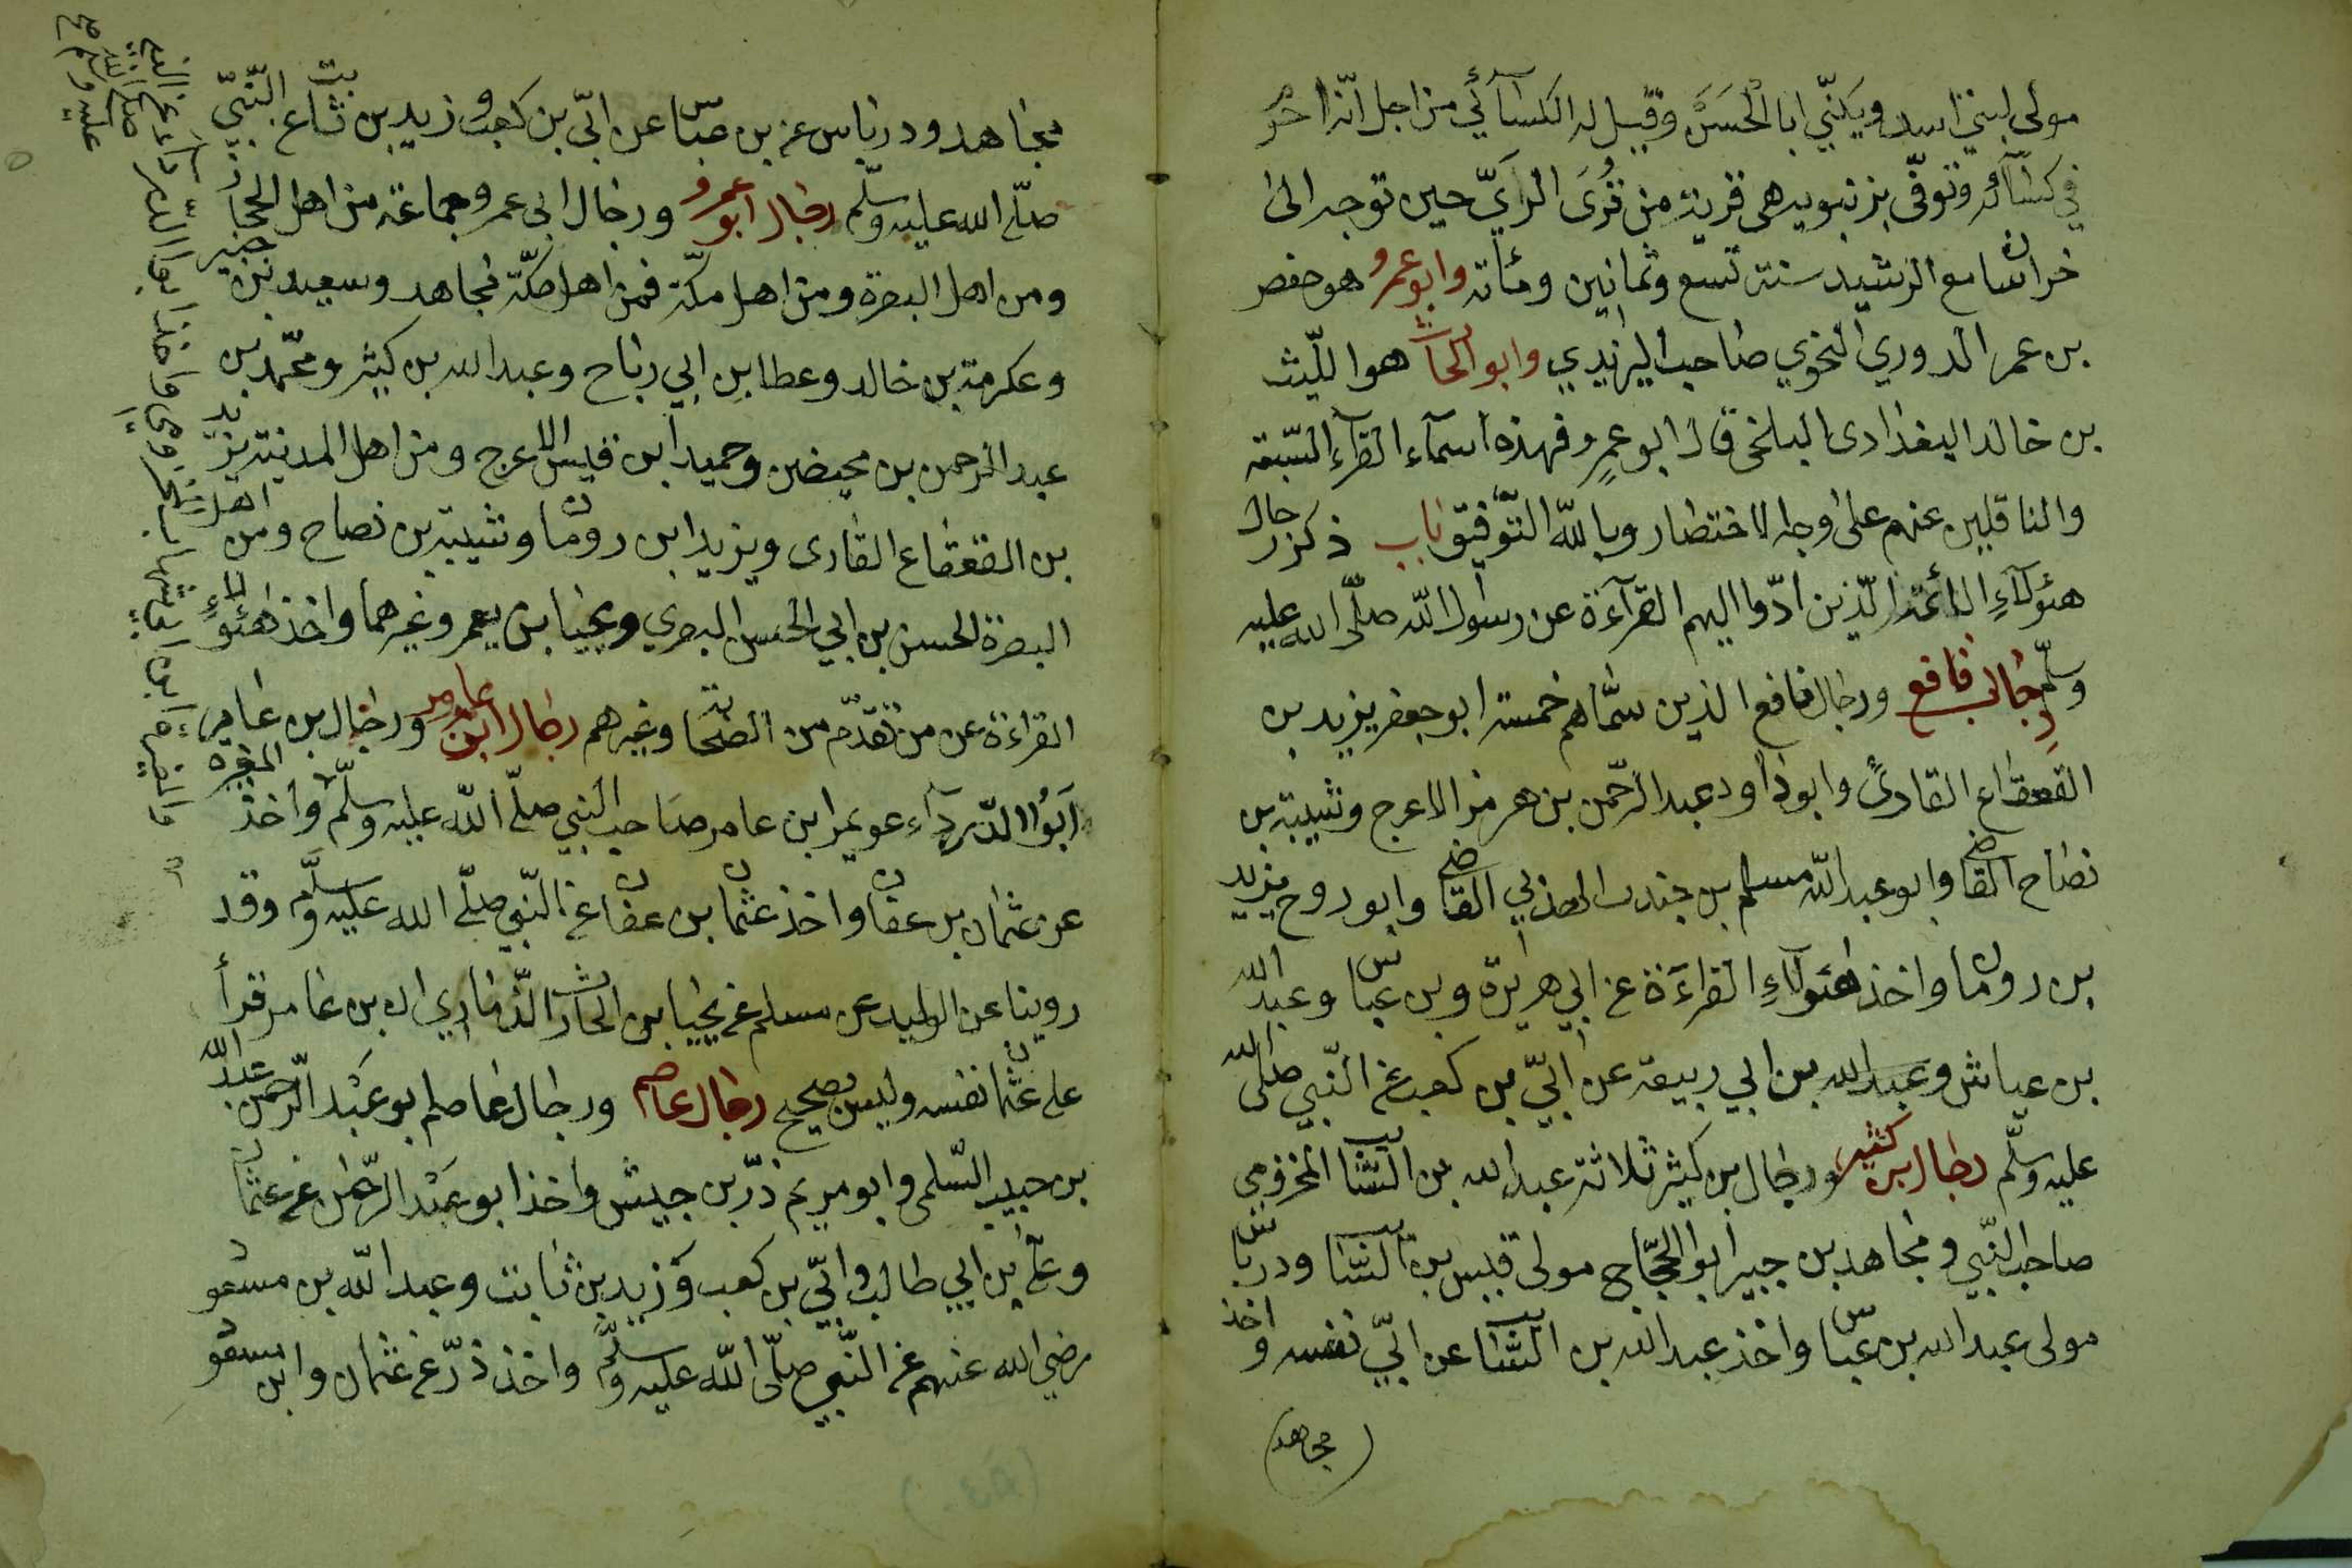 مولى لبني اسد ويكنّي ابا الحَسَن وقيل له الكسآئي من اجل انّه احرم
في كسآئه وتوفّى بزنبويه هى قرية من قُرَى الرَّيّ حين توجه الى
خراسان مع الرشيد سنة تسع وثمانين ومأته وابو عمرو هو حفص
بن عمر الدوري النحوي صاحب اليزيدي وابو الحارث هوا الليث
بن خالد البغدادى البلخى قال ابو عمرٍو فهذه اسمآء القرآء السّبعة
والناقلين عنهم على وجه الاختصار وبالله التّوفيق باب ذكر رجال
هئولآءِ الائمة الّذين ادّوا اليهم القرآءة عن رسول الله صلّى الله عليه
وسلّم رجال نافع ورجال نافع الذين سمّاهم خمسة ابو جعفر يزيد بن
القعقاع القارئ وابو داود عبد الرّحمن بن هرمز الاعرج وشيبة بن
نصاح القاضى وابو عبد الله مسلم بن جندب الهذلي القاضى وابو روح يزيد
بن رومان واخذ هئولآءِ القراءَة عن ابي هريرة وبن عباس وعبد الله
بن عياش وعبد الله بن ابي ربيعة عن ابيّ بن كعب عن النّبي صلى الله
عليه وسلّم رجال بن كثير ورجال بن كيثر ثلاثة عبد الله بن السّائب المخزومي
صاحب النّبي ومجاهد بن جبير ابو الحجّاج مولى قيس بن السّائب ودرباس
مولى عبد الله بن عبّاس واخذ عبد الله بن السّائب عن ابيّ نفسه واخذ
(مجاهد)
مجاهد ودرباس عن بن عبّاس عن ابيّ بن كعب وزيد بن ثابت عن النّبيّ
صلّى الله عليه وسلّم رجال ابو عمرو ورجال ابى عمرو جماعة من اهل الحجاز
ومن اهل البصرة ومن اهل مكّة فمن اهل مكّة مجاهد وسعيد بن جبير
وعكرمة بن خالد وعطا بن ابي رباح وعبد الله بن كيثر ومحمّد بن
عبد الرحمن بن محيضن وحميد ابن قيس الاعرج ومن اهل المدينة يزيد
بن القعقاع القارى ويزيد ابن رومان وشيبة بن نصاح ومن اهل
البصرة الحسن بن ابي الحسن البصري ويحيا بن يعمر وغيرهما واخذ هئولاءِ
القراءة عن من تقدّم من الصّحابة وغيرهم رجال ابن عامر ورجال بن عامر
اَبُوا الدّردآءِ عويمر ابن عامر صاحب النبي صلّى الله عليه وسلّم واخذ المغيرة
عن عثمان بن عفان واخذ عثمان بن عفان عن النّبي صلّى الله عليه وسلّم وقد
روينا عن الوليد عن مسلم عن يحيا بن الحارث الذّماري ان بن عامر قرأ
على عثمان نفسه وليس بصحيح رجال عاصم ورجال عاصم ابو عَبْد الرّحمن عبد الله
بن حبيب السّلمى وابو مريم ذرّ بن جيش واخذ ابو عَبْد الرّحمن عن عثمان
وعلى بن ابي طالب وابيّ بن كعب وَزيد بن ثابت وعبد الله بن مسعود
رضي الله عنهم عن النّبي صلّى الله عليه وسلّم واخذ ذرّ عن عثمان وابن مسعود
والمغيرة ابن ابي شهاب المخزومى واخذ ابو الدرداء عن النبي
صلى الله
عليه وسلم صح